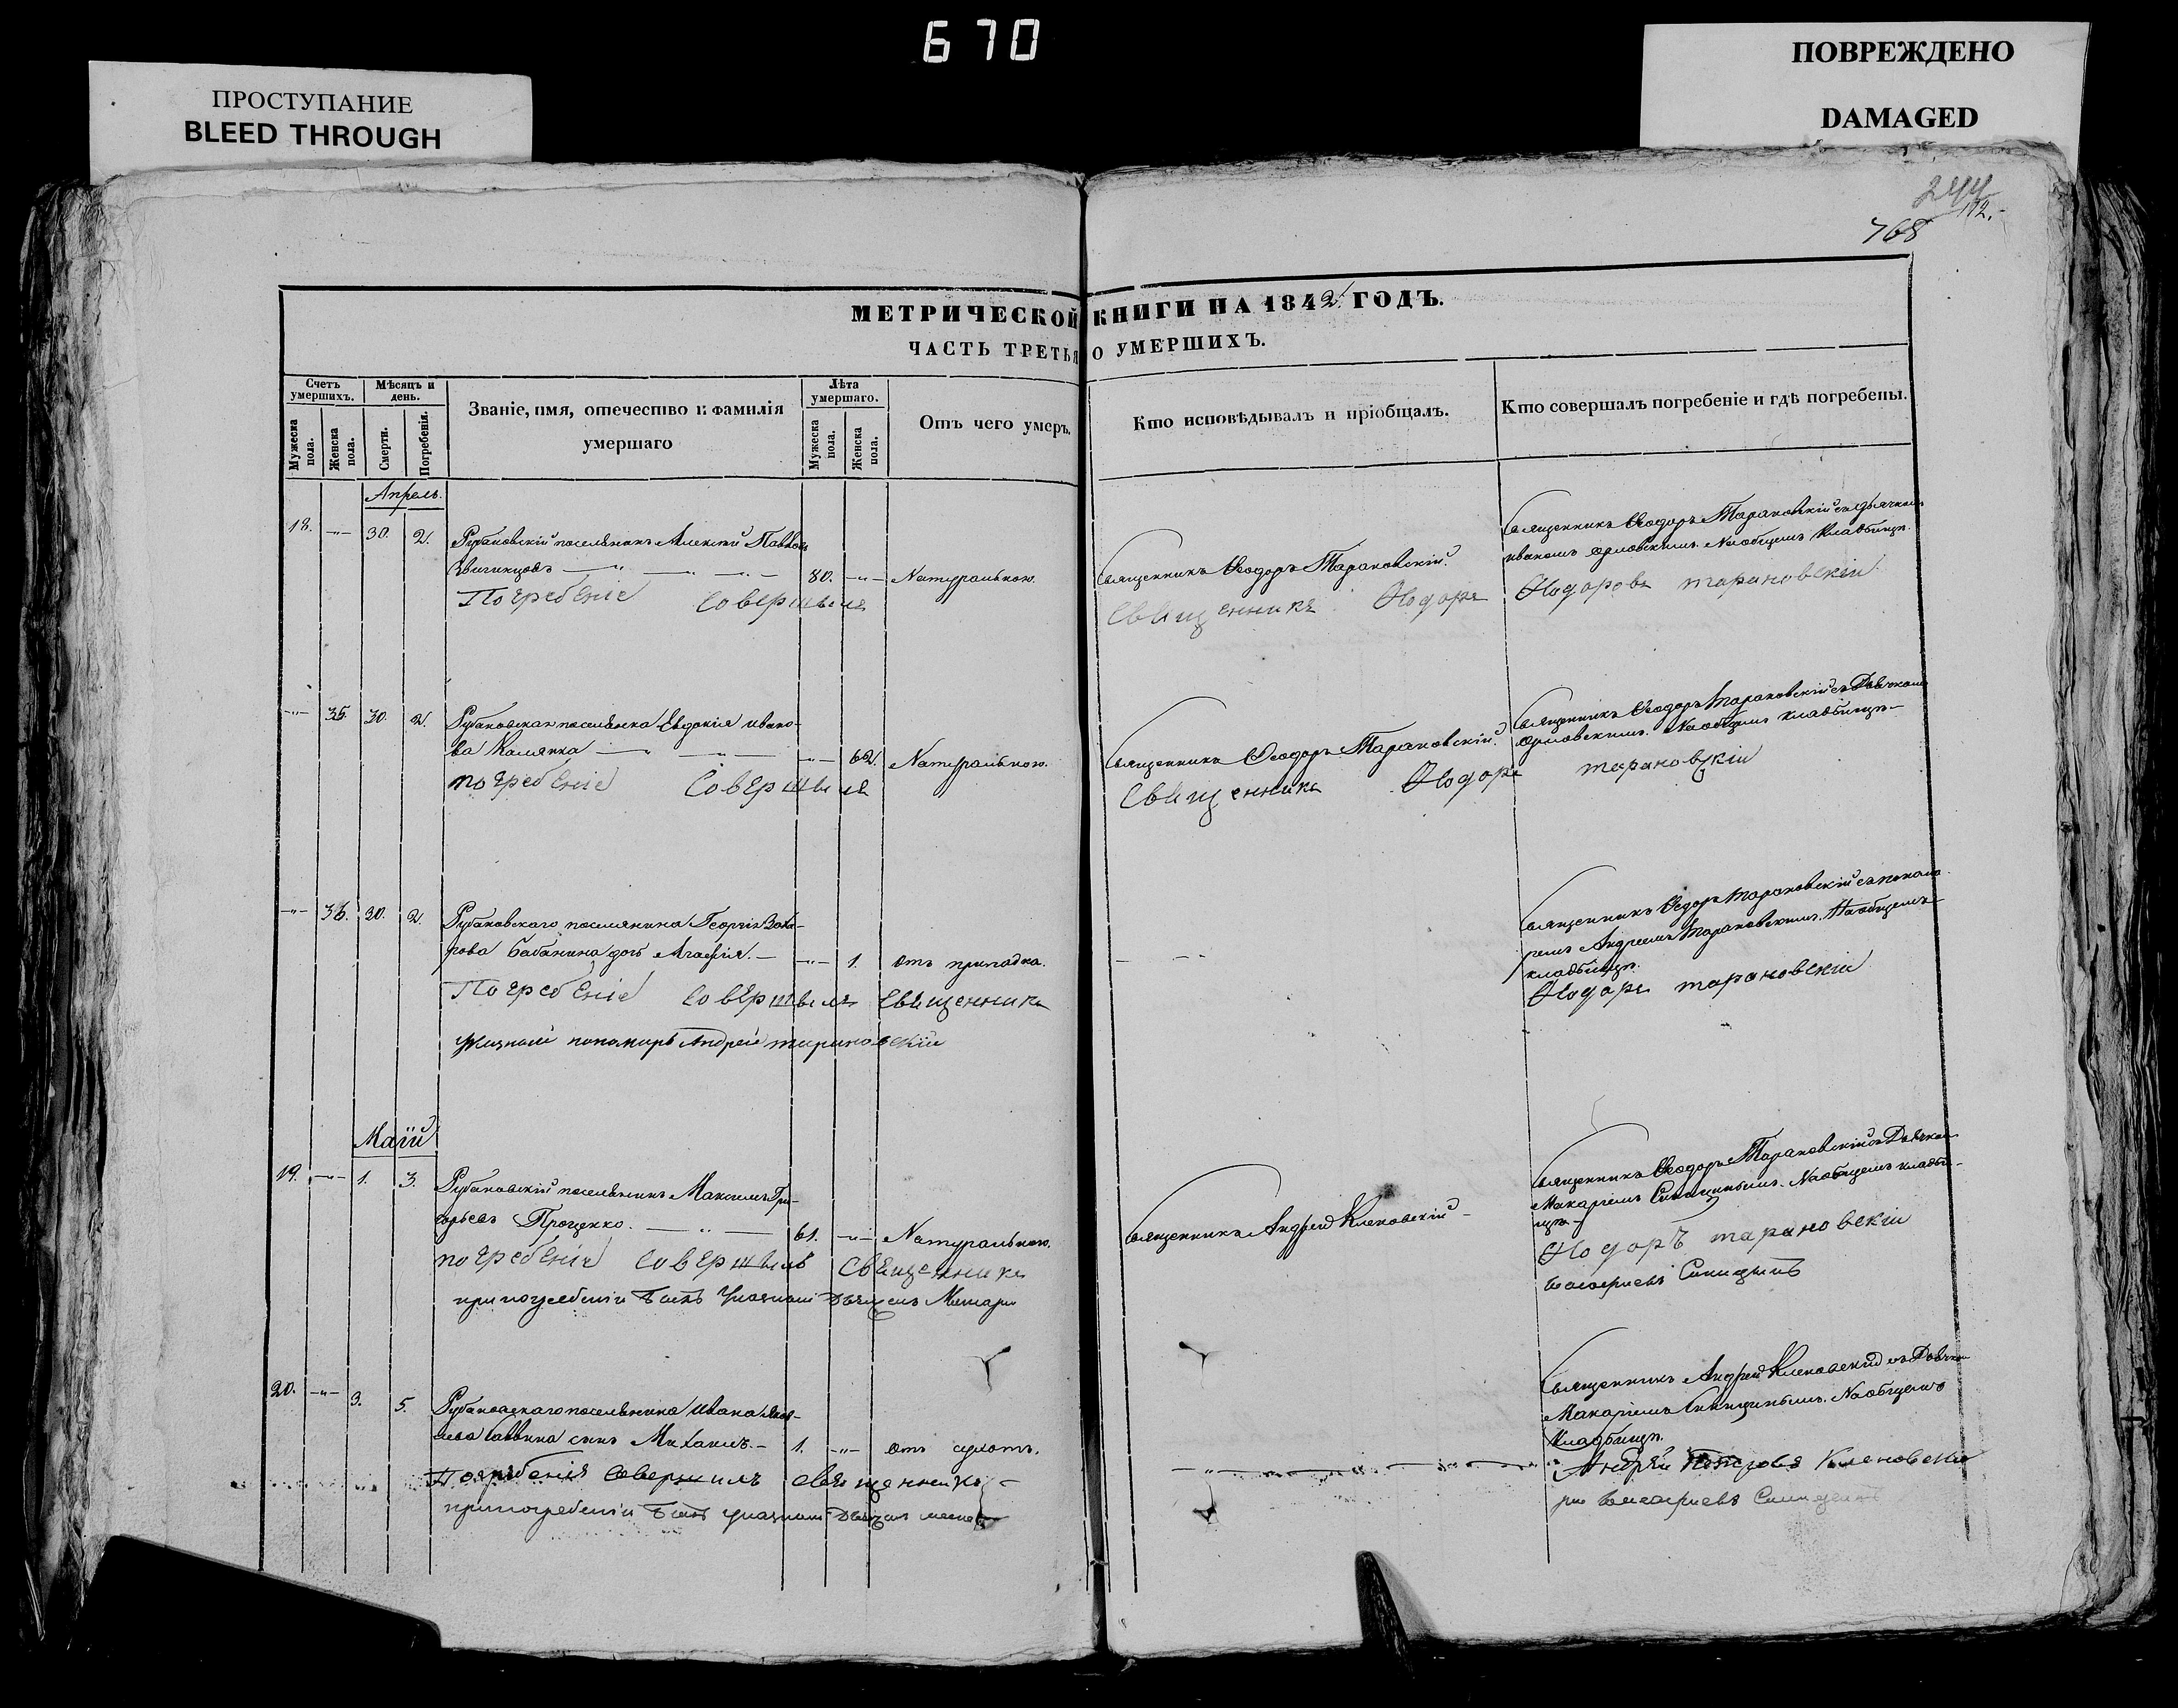 670
ПРОСТУПАНИЕ
BLEED THROUGH
ПОВРЕЖДЕНО
DAMAGED
244
112.
768
МЕТРИЧЕСКОЙ КНИГИ НА 1842. ГОДЪ.
ЧАСТЬ ТРЕТЬЯ О УМЕРШИХЪ.
Счетъ умершихъ.
Мужеска пола.
Женска пола.
Мѣсяцъ и день.
Смерти.
Погребенія.
Званіе, имя, отечество и фамилія умершаго
Лѣта умершаго.
Мужеска пола.
Женска пола.
Отъ чего умеръ.
Кто исповѣдывалъ и пріобщалъ.
Кто совершалъ погребеніе и гдѣ погребены.
Апрель.
18. -"- 30. 2. Рубановскій поселянинъ Алексѣй Павловъ
80. -"- Натуральною.
Священникъ Ѳеодоръ Тарановскій.
Священникъ Ѳеодоръ Тарановскій съ дьячкомъ
Иваномъ Орловскимъ. На общемъ кладбищѣ.
Погребеніе Совершилъ Священникъ Ѳеодоръ Ѳеодоровъ тарановскій
-"- 35. 30. 2. Рубановская поселянка Евдокія Ивано-
ва Калянка -"- 62. Натуральною.
Священникъ Ѳеодоръ Тарановскій.
Священникъ Ѳеодоръ Тарановскій съ Дьячкомъ
Орловскимъ. На общемъ кладбищѣ
погребеніе Совершилъ Священникъ Ѳеодоръ тарановскій
-"- 36. 30. 2. Рубановскаго поселянина Георгія Заха-
рова Бабанина дочь Агафія. -"- 1. отъ припадка.
Священникъ Ѳеодоръ Тарановскій съ понома-
ремъ Андреемъ Тарановскимъ. На общемъ
кладбищѣ.
Погребеніе Совершилъ Священникъ Ѳеодоръ тарановскій
указной пономарь Андрей тарановскій
Маій
19. -"- 1. 3. Рубановскій поселянинъ Максимъ Гри-
горьевъ Проценко. 61. -"- Натуральною.
Священникъ Андрей Кленовскій
Священникъ Ѳеодоръ Тарановскій съ Дьячкомъ
Макаріемъ Синицинымъ. На общемъ кладби-
щѣ
погребеніе Совершилъ Священникъ Ѳеодоръ тарановскій
при погребеніи былъ указной Дьячекъ Макари
Синицынъ
20. -"- 3. 5. Рубановскаго поселянина Ивана Яков-
лева Саввина сынъ Михаилъ. 1. -"-
Священникъ Андрей Кленовскій съ Дьячкомъ
Макаріемъ Синицинымъ. На общемъ
кладбищѣ.
Погребеніе Совершилъ Священникъ Андрей Петровъ Кленовскій
при погребеніи былъ указной Дьячекъ